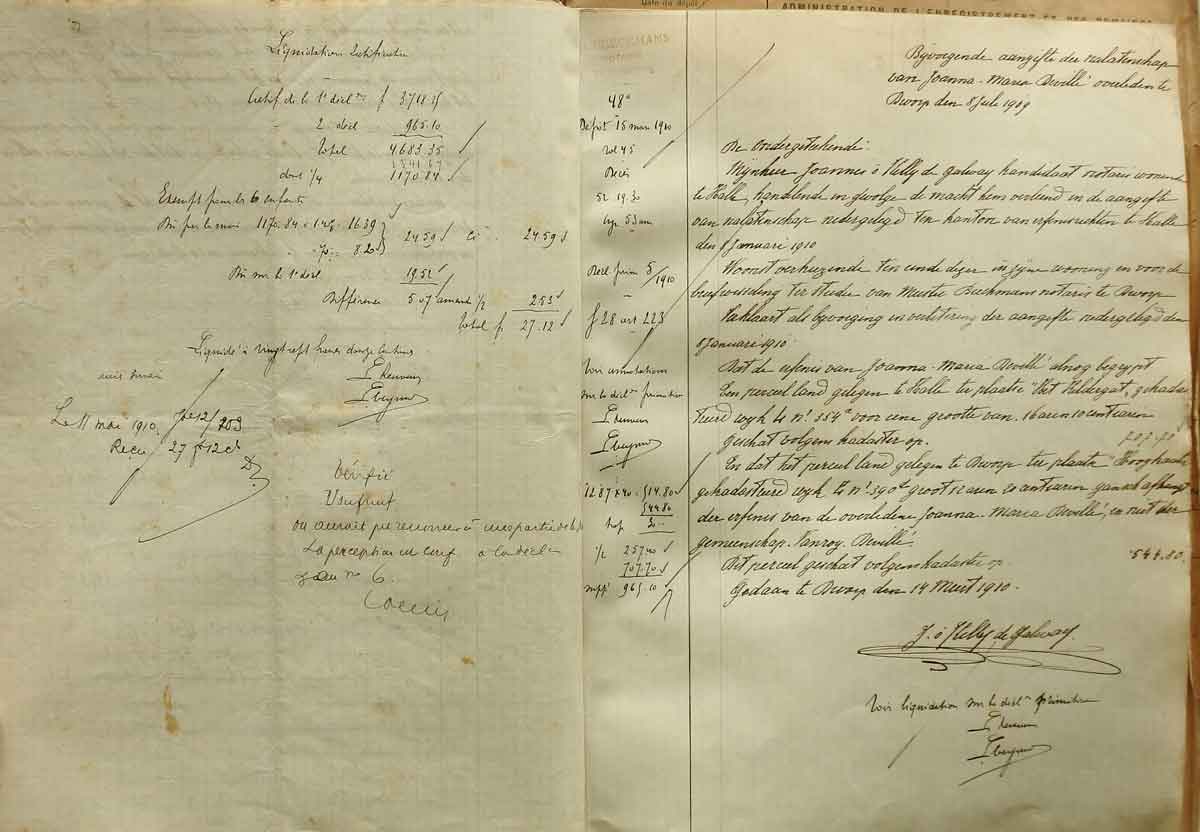 Date du dépôt
ADMINISTRATION DE L'ENREGISTREMENT ET DES
Liquidation rectificative
Actif de la 1e décl.on f 3718.25
2 décl 965.10
Total 4683.35
dont 1/4 1170.84
Exempt pour les 6 enfants
Dû par le mari 1170.84 à 1.40% 16.39
8.20
24.59 ci 24.59
Dû sur la 1e décl 19.52
Différence 5.07 amende 1/2 2.53
Total f. 27.12
Liquidé à vingt sept francs douze centimes
Le Receveur
Le 11 mai 1910.
Reçu 27 f 12 cs
Vérifié
Usufruit
ou aurait pu renoncer à une partie de la
La perception en
6.
48e
Dépôt 15 mars 1910
Vol 45
Décès
52 1930
Decl prim 5/1910
§ 28 art 223
Voir annotations
sur la décl primitive
Le Receveur
1287 x 40 = 514.80
544.80
1/2 257.40
707.70
965.10
Bijvoegende aangifte der nalatenschap
van Joanna-Maria Devillé overleden te
Dworp den 8 Juli 1909
De Ondergeteekende:
Mijnheer Joannes ô Kelly de Galway kandidaat notaris wonende
te Halle, handelende ingevolge de macht hem verleend in de aangifte
van nalatenschap nedergelegd ten kantore van erfenisrechten te Halle
den 8 Januari 1910
Woonst verkiezende ten einde dezer in zijne wooning en voor de
briefwisseling ter studie van Meester Beckmans notaris te Dworp
Verklaart als bijvoeging in verbetering der aangifte nedergelegd den
8 Januari 1910:
Dat de erfenis van Joanna-Maria Devillé alnog begrijpt
Een perceel land gelegen te Halle ter plaatse "Het Heldergat, gekadas
treerd wijk E nr 354a voor eene grootte van 16 aren 10 centiaren
geschat volgens kadaster op. 707.70
En dat het perceel land gelegen te Dworp ter plaatse
gekadastreerd wijk E nr 390d groot 12 aren 20 centiaren gansch afhangt
der erfenis van de overledene Joanna-Maria Devillé, en niet der
gemeenschap Vanroy-Devillé
Dit perceel geschat volgens kadaster op. 544.80.
Gedaan te Dworp den 14 Meert 1910.
J. ô Kelly de Galway
Voir liquidation sur la décl.on primitive
Le Receveur